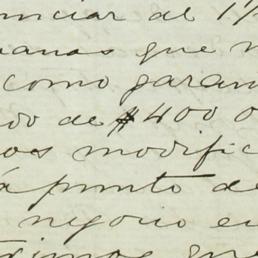 nciar al 1%
anas que
como garan
do de $400 0
os modific
á punto de
negocio en
ximos que